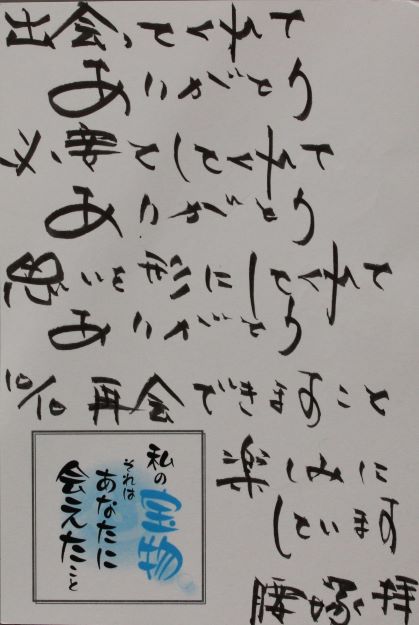 出会ってくれて
ありがとう
必要としてくれて
ありがとう
思いを形にしてくれて
ありがとう
10/10 再会できますこと
楽しみに
しています
腰塚 拝
私の宝物
それは
あなたに
会えたこと